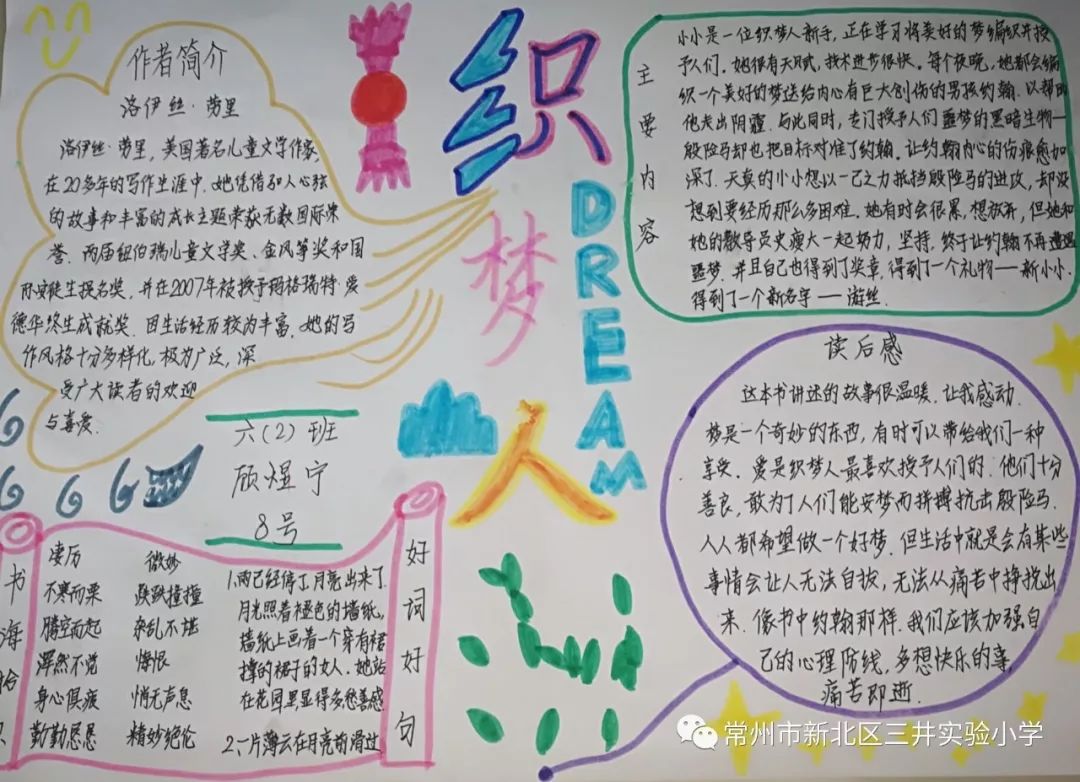 作者简介
洛伊丝·劳里
洛伊丝·劳里，美国著名儿童文学作家，
在20多年的写作生涯中，她凭借扣人心弦
的故事和丰富的成长主题荣获无数国际荣
誉、两届纽伯瑞儿童文学奖、金风筝奖和国
际安徒生提名奖，并在2007年被授予玛格瑞特·爱
德华终生成就奖。因生活经历较为丰富，她的写
作风格十分多样化，极为广泛，深
受广大读者的欢迎
与喜爱。
织
梦
人
DREAM
主要内容
小小是一位织梦人新手，正在学习将美好的梦编织并授
予人们。她很有天赋，技术进步很快。每个夜晚，她都会编
织一个美好的梦送给内心有巨大创伤的男孩约翰。以帮助
他走出阴霾。与此同时，专门授予人们噩梦的黑暗生物—
殷险马却也把目标对准了约翰。让约翰内心的伤痕愈加
深了。天真的小小想以一己之力抵挡殷险马的进攻，却没
想到要经历那么多困难。她有时会很累，想放弃，但她和
她的教导员史瘦大一起努力，坚持，终于让约翰不再遭遇
噩梦，并且自己也得到了奖章，得到了一个礼物——新小小，
得到了一个新名字——游丝。
六（2）班
顾煜宁
8号
读后感
这本书讲述的故事很温暖，让我感动。
梦是一个奇妙的东西，有时可以带给我们一种
享受。爱是织梦人最喜欢授予人们的。他们十分
善良，敢为了人们能安梦而拼搏抗击殷险马。
人人都希望做一个好梦，但生活中就是会有某些
事情会让人无法自拔，无法从痛苦中挣扰出
来，像书中约翰那样。我们应该加强自
己的心理防线，多想快乐的事，
痛苦即逝。
书海拾
凄厉 微妙
不寒而栗 跌跌撞撞
腾空而起 杂乱不堪
浑然不觉 悔恨
身心俱疲 悄无声息
勤勤恳恳 精妙绝伦
1.雨已经停了，月亮出来了，
月光照着橙色的墙纸，
墙纸上画着一个穿有裙
撑的裙子的女人。她站
在花园里显得多愁善感
2.一片薄云在月亮前滑过
好词好句
常州市新北区三井实验小学